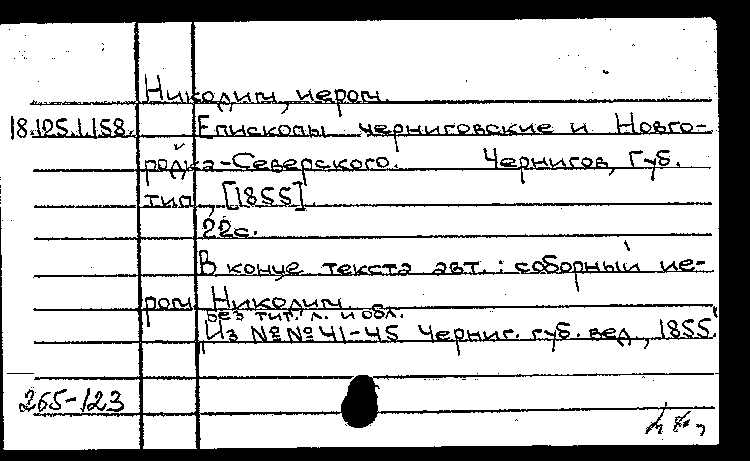 Никодим, иером.
18.125.1.158. Епископы черниговские и Новго-
родка-Северского. Чернигов, Губ.
тип., [1855].
22с.
В конце текста авт.: соборный ие-
ром. Никодим.
Без тит. л. и обл.
Из №№41-45 Черниг. губ. вед., 1855.
265-123